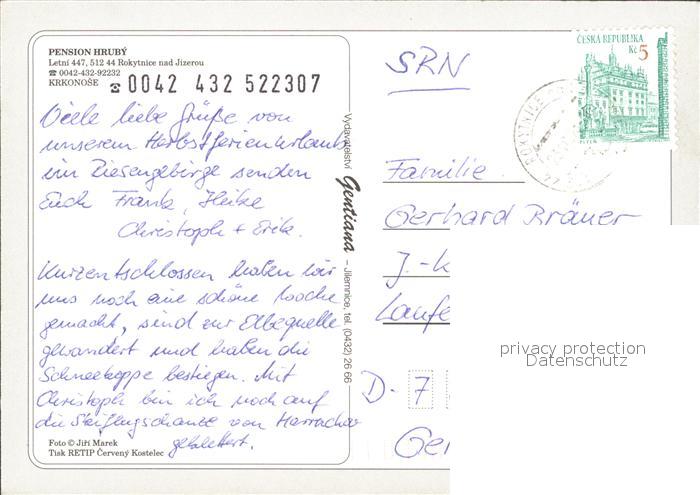 PENSION HRUBÝ
Letní 447, 512 44 Rokytnice nad Jizerou
☎ 0042-432-92232
KRKONOŠE ☎ 0042 432 522307
Viele liebe Grüße von
unserem Herbstferienurlaub
im Riesengebirge senden
Euch Frank, Heike
Christoph + Erik.
Kurzentschlossen haben wir
uns noch eine schöne Woche
gemacht, sind zur Elbequelle
gewandert und haben die
Schneekoppe bestiegen. Mit
Christoph bin ich noch auf
die Skiflugschanze von Harrachov
geklettert.
Foto © Jiří Marek
Tisk RETIP Červený Kostelec
Vydavatelství Gentiana – Jilemnice, tel. (0432) 26 66
SRN
ČESKÁ REPUBLIKA
Kč 5
PLZEŇ
ROKYTNICE
Familie
Gerhard Bräuer
J.-K
Laufe
D-7
Ge
privacy protection
Datenschutz